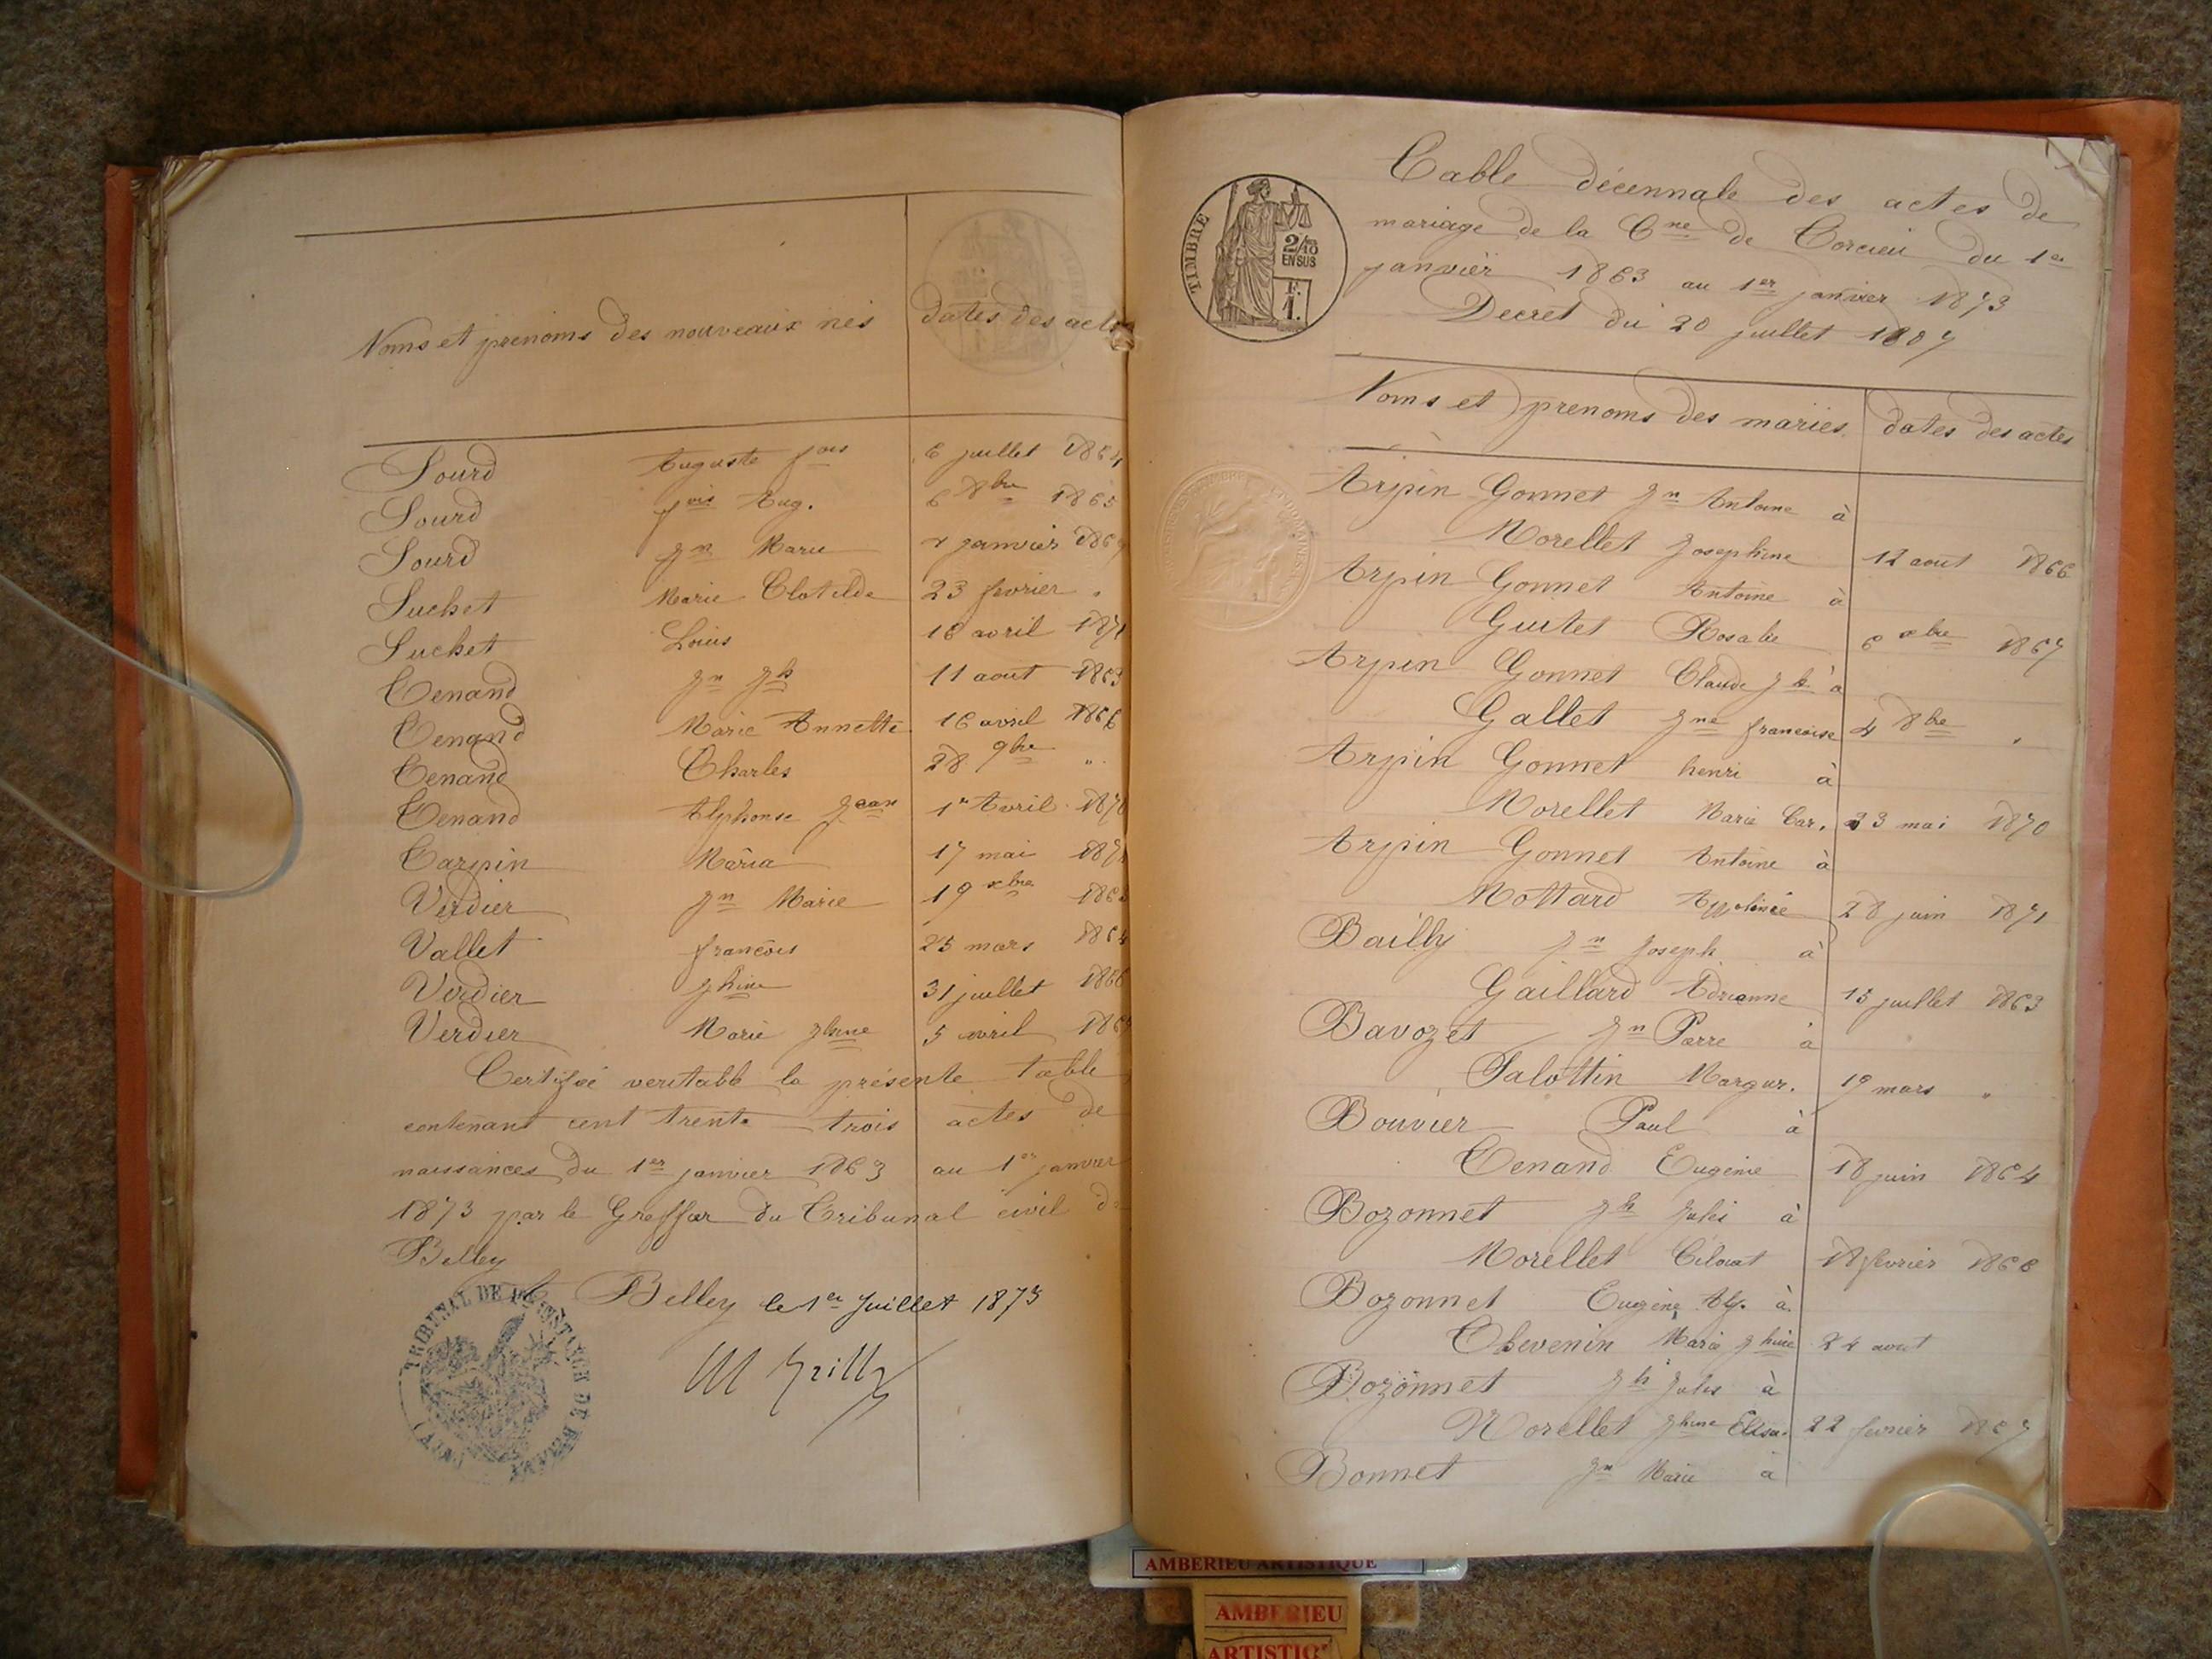 Noms et prenoms des nouveaux nés dates des actes
Sourd Auguste fois 6 juillet 1864
Sourd fois Aug. 6 8bre 1865
Sourd Jn Marie 2 janvier 1869
Suchet Marie Clotilde 23 fevrier "
Suchet Louis 16 avril 1871
Tenand Jn Jh 11 aout 1863
Tenand Marie Annette 16 avril 1866
Tenand Charles 28 9bre "
Tenand Alphonse Jean 1er Avril 1870
Tarpin Maria 17 mai
Verdier Jn Marie 19 xbre
Vallet francois 25 mars 1864
Verdier Jhine 31 juillet 1866
Verdier Marie Jhine 5 avril
Certifiée veritable la présente table
contenant cent trente trois actes de
naissances du 1er janvier 1863 au 1er janvier
1873 par le Greffier du Tribunal civil de
Belley
Belley le 1er Juillet 1873
TRIBUNAL DE 1ère INSTANCE DE BELLEY (AIN)
TIMBRE
2/10
EN SUS
F.
1.
Table décennale des actes de
mariage de la Cne de Corcieu du 1er
janvier 1863 au 1er janvier 1873
Decret du 20 juillet 1807
Noms et prenoms des mariés dates des actes
Arpin Gonnet Jn Antoine à
Morellet Josephine 12 aout 1866
Arpin Gonnet Antoine à
Guitet Rosalie 6 xbre 1867
Arpin Gonnet Claude Jh à
Gallet Jne francoise 4 8bre "
Arpin Gonnet henri à
Morellet Marie Car. 23 mai 1870
Arpin Gonnet Antoine à
Mottard Appolinie 28 juin 1871
Bailly Jn Joseph à
Gaillard Adrianne 15 juillet 1863
Bavozet Jn Parre à
Salottin Margur. 19 mars "
Bouvier Paul à
Tenand Eugénie 18 juin 1864
Bozonnet Jh Jules à
Morellet 18 fevrier 1866
Bozonnet Eugène Alp. à
Thevenin Marie Jhine 24 aout
Bozonnet Jh Jules à
Morellet Jhine Elisa. 22 fevrier 1867
Bonnet Jn Marie à
AMBERIEU ARTISTIQUE
AMBERIEU